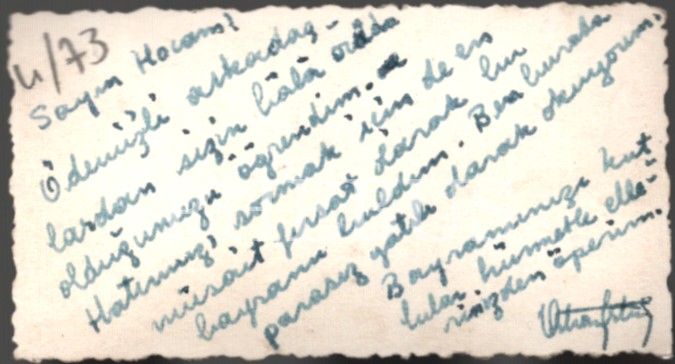 4/73
Sayın Hocam!
Ödemişli arkadaş-
lardan sizin hâlâ orada
olduğunuzu öğrendim.
Hatırınızı sormak için de en
müsait fırsat olarak bu
bayramı buldum. Ben burada
parasız yatılı olarak okuyorum.
Bayramınızı kut
lular hürmetle elle-
rinizden öperim.